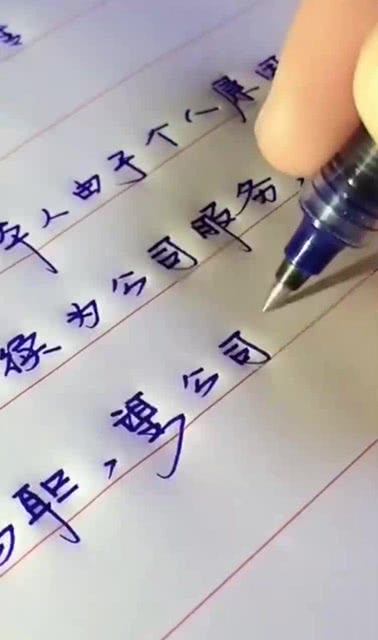 本人由于个人原因
续为公司服务，
职，望公司